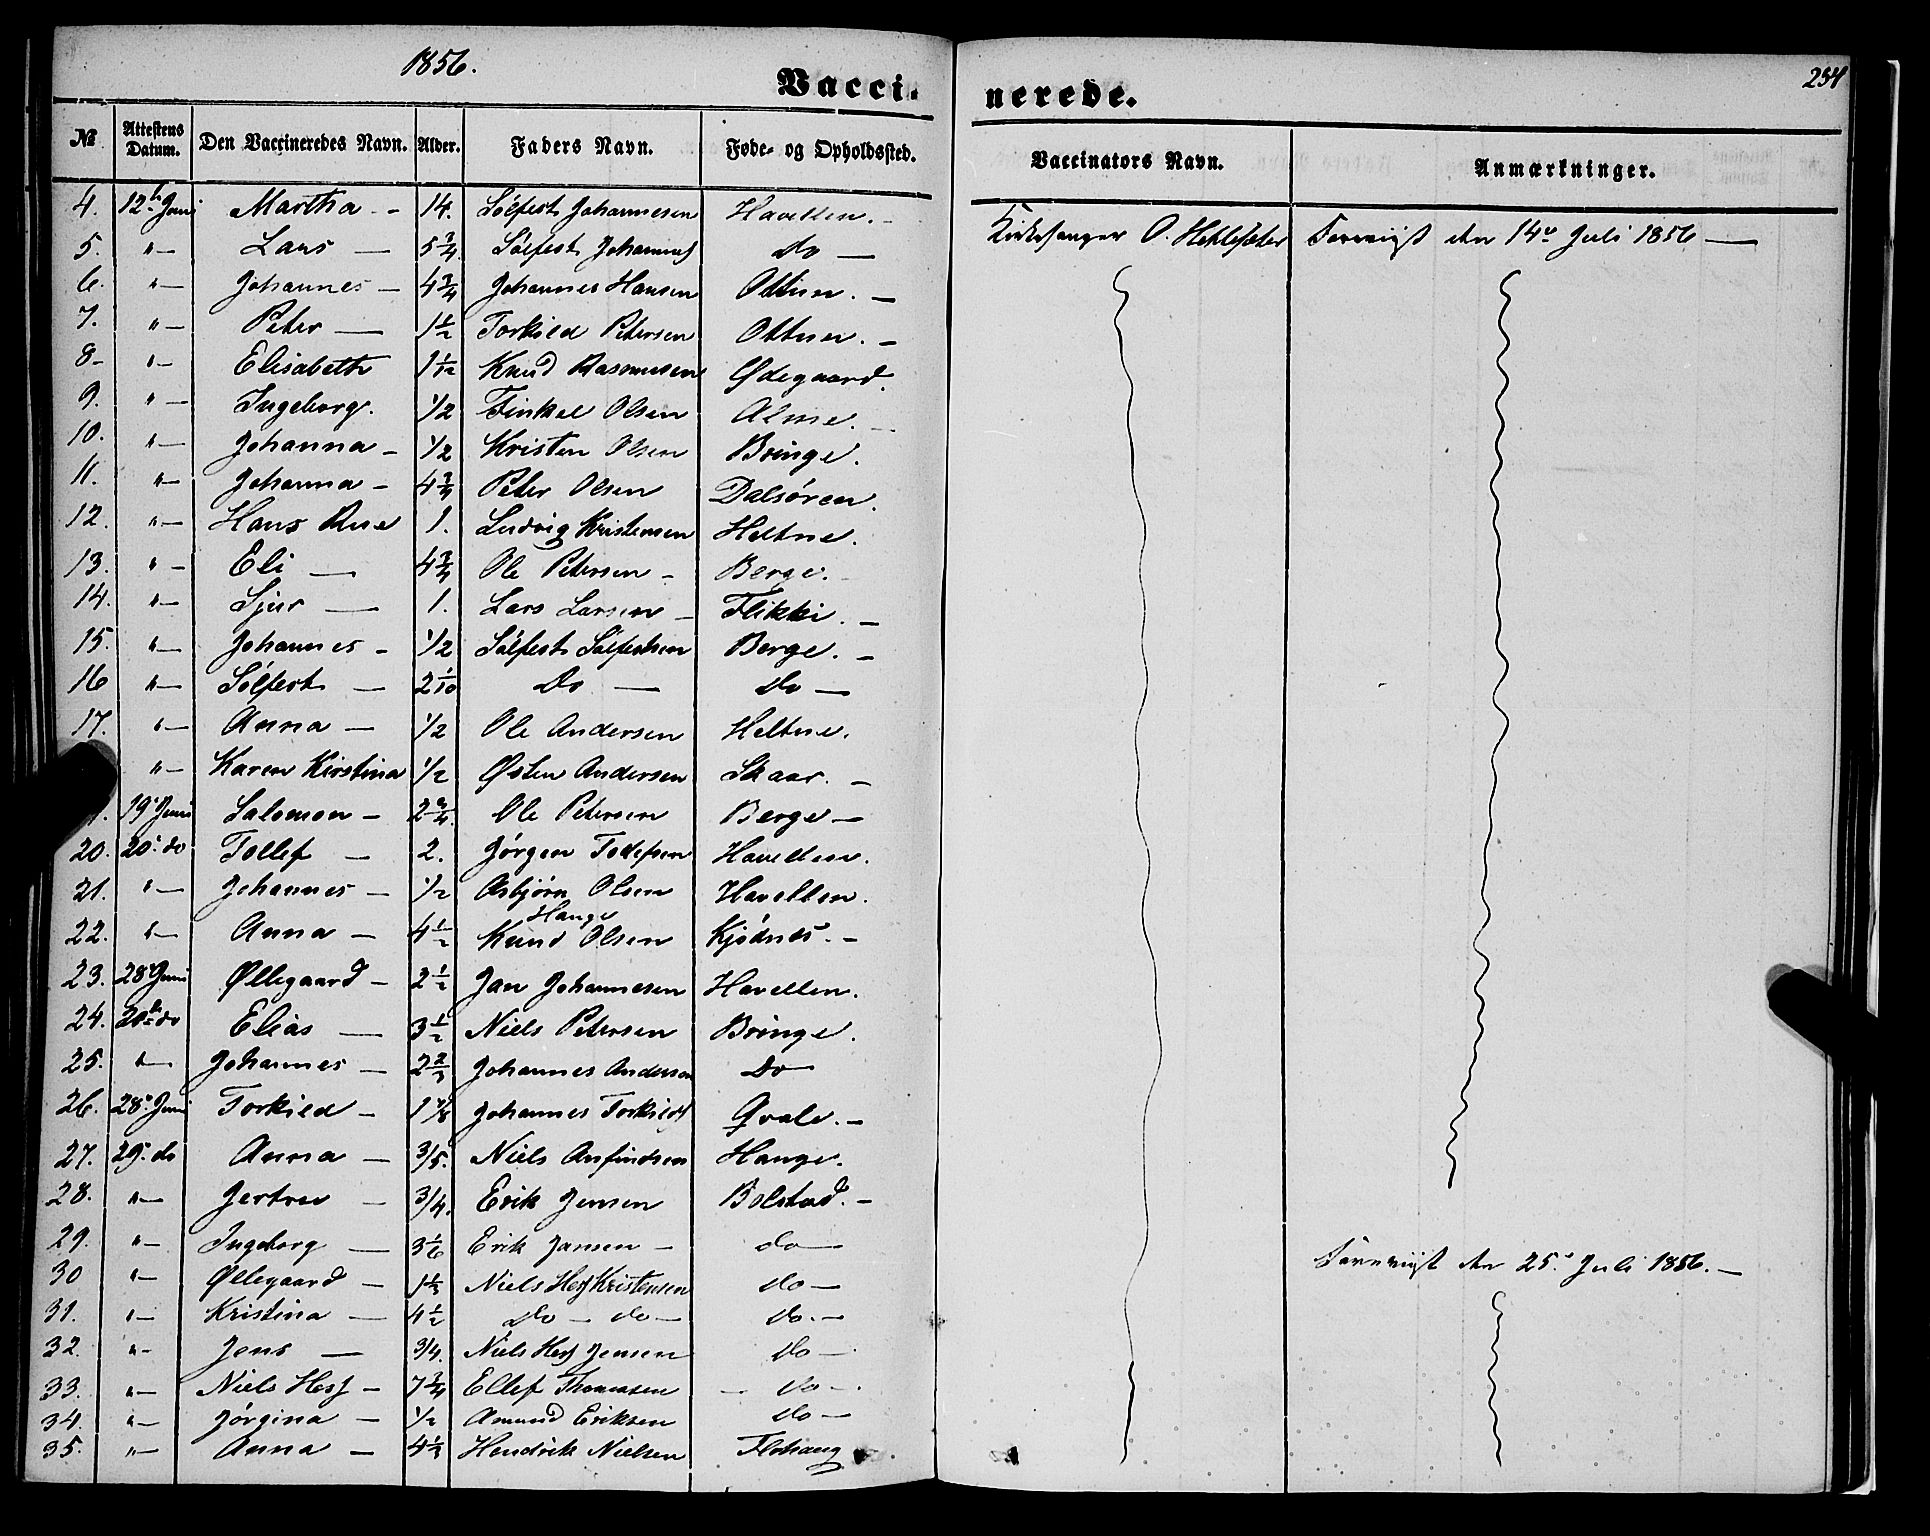 1856.
Vacci-
nerede.
254
№ Attestens Datum. Den Vaccineredes Navn. Alder. Faders Navn. Føde- og Opholdssted. Vaccinators Navn. Anmærkninger.
4. 12te Juni Martha - 14. Sølfest Johannesen Havellen. - Kirkesanger O. Heklesæter Foreviist den 14de Juli 1856 —
5. " — Lars — 5 3/4 Sølfest Johannes do —
6. " — Johannes — 4 3/4 Johannes Hansen Ottun. —
7. " — Peter — 1 1/2 Torkild Petersen Ottun. -
8 - " — Elisabeth 1 1/12 Knud Rasmusen Ødegaard.
9. " — Ingeborg. 1/2 Finkel Olsen Alme. —
10. " — Johanna - 1/2 Kristen Olsen Bringe.
11. " — Johanna - 4 3/4 Peter Olsen Dalsøren.
12. " — Hans 1. Ludvig Kristensen Heltne.
13. " — Eli — 4 3/4 Ole Petersen - Berge. -
14. " — Sjur — 1. Lars Larsen - Flikki. —
15. " — Johannes - 1/2 Sølfest Sølfestsen Berge. —
16 " — Sølfest — 2 1/10 Do — do —
17. " — Anna — 1/2 Ole Andersen Heltne.
" — Karen Kirstina 1/2 Østen Andersen Skaar. —
. 19de Juni Salomon - 2 3/4. Ole Petersen Berge —
20. 20de do Tollef — 2. Jørgen Tollefsen Havellen.
21. " — Johannes — 1/2 Asbjørn Olsen Havellen.
22. " — Anna — 4 1/2 Knud Hauge Olsen Kjødnes. -
23. 28de Juni Øllegaard - 2 1/2 Jan Johannesen Havellen.
24. do Elias — 3 1/2 Niels Petersen Bringe.
25. " — Johannes — 2 2/3 Johannes Andersen Do —
26. 28de Juni Torkild - 1 Johannes Torkilds Qvale. -
27. 29de do Anna — 3/5. Niels Anfindsen Hauge.
28. " — Jertru — 3/4. Erik Jensen Bolstad. -
29. " — Ingeborg — 3 1/6 Erik Jansen - do — Foreviist den 25de Juli 1856. —
30 " — Øllegaard - 1 1/3 Niels Hess Kristensen do —
31. " — Kristina — 4 1/2 do — do — do. —
32. " - Jens — 3/4. Niels Hess Jensen do —
33. " — Niels Hess - 7 3/4 Ellef Thomasen — do —
34. " — Jørgina — 1/2 Amund Eriksen do —
35. " — Anna — 4 1/3 Hendrik Nielsen Flohaug